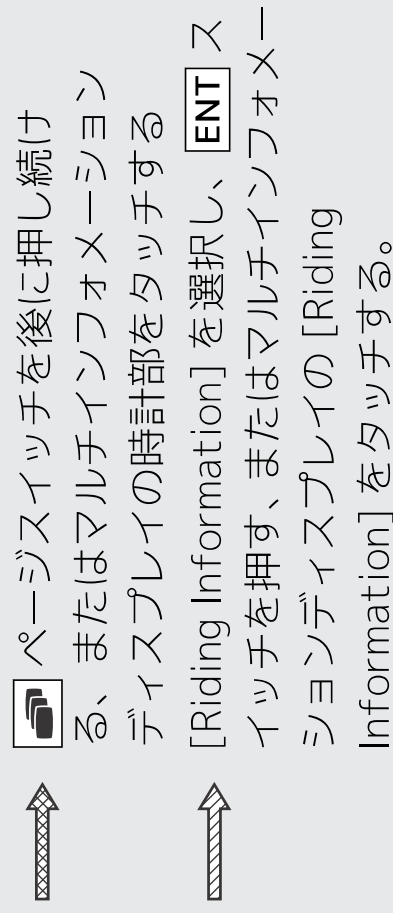 ページスイッチを後に押し続け
る、またはマルチインフォメーション
ディスプレイの時計部をタッチする
[Riding Information] を選択し、ENT ス
イッチを押す、またはマルチインフォメー
ションディスプレイの [Riding
Information] をタッチする。